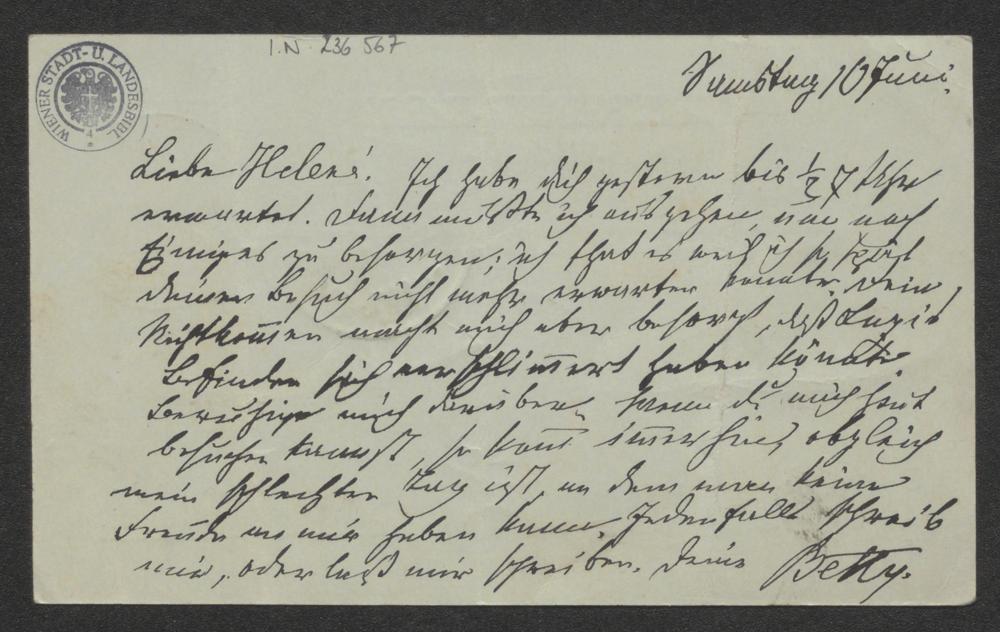 I.N. 236 567
WIENER STADT- U. LANDESBIBL.
4
Samstag 10 Juni.
Liebe Helene! Ich habe dich gestern bis ½ 7 Uhr
erwartet. Dann mußte ich ausgehen, um noch
Einiges zu besorgen; ich that es weil ich so spät
deinen Besuch nicht mehr erwarten konnte. Dein
Nichtkommen macht mich aber besorgt, daß
Befinden sich verschlimmert haben könnte
Beruhige mich darüber. Wenn du mich heut
besuchen kannst, so kom̄ im̄erhin, obgleich
mein schlechter Tag ist, an dem man keine
Freude an mir haben kann. Jedenfalls schreib
mir, oder laß mir schreiben. Deine Betty.